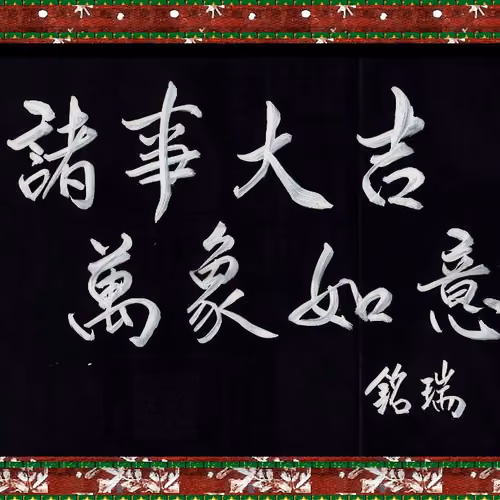 諸事大吉
萬象如意
銘瑞